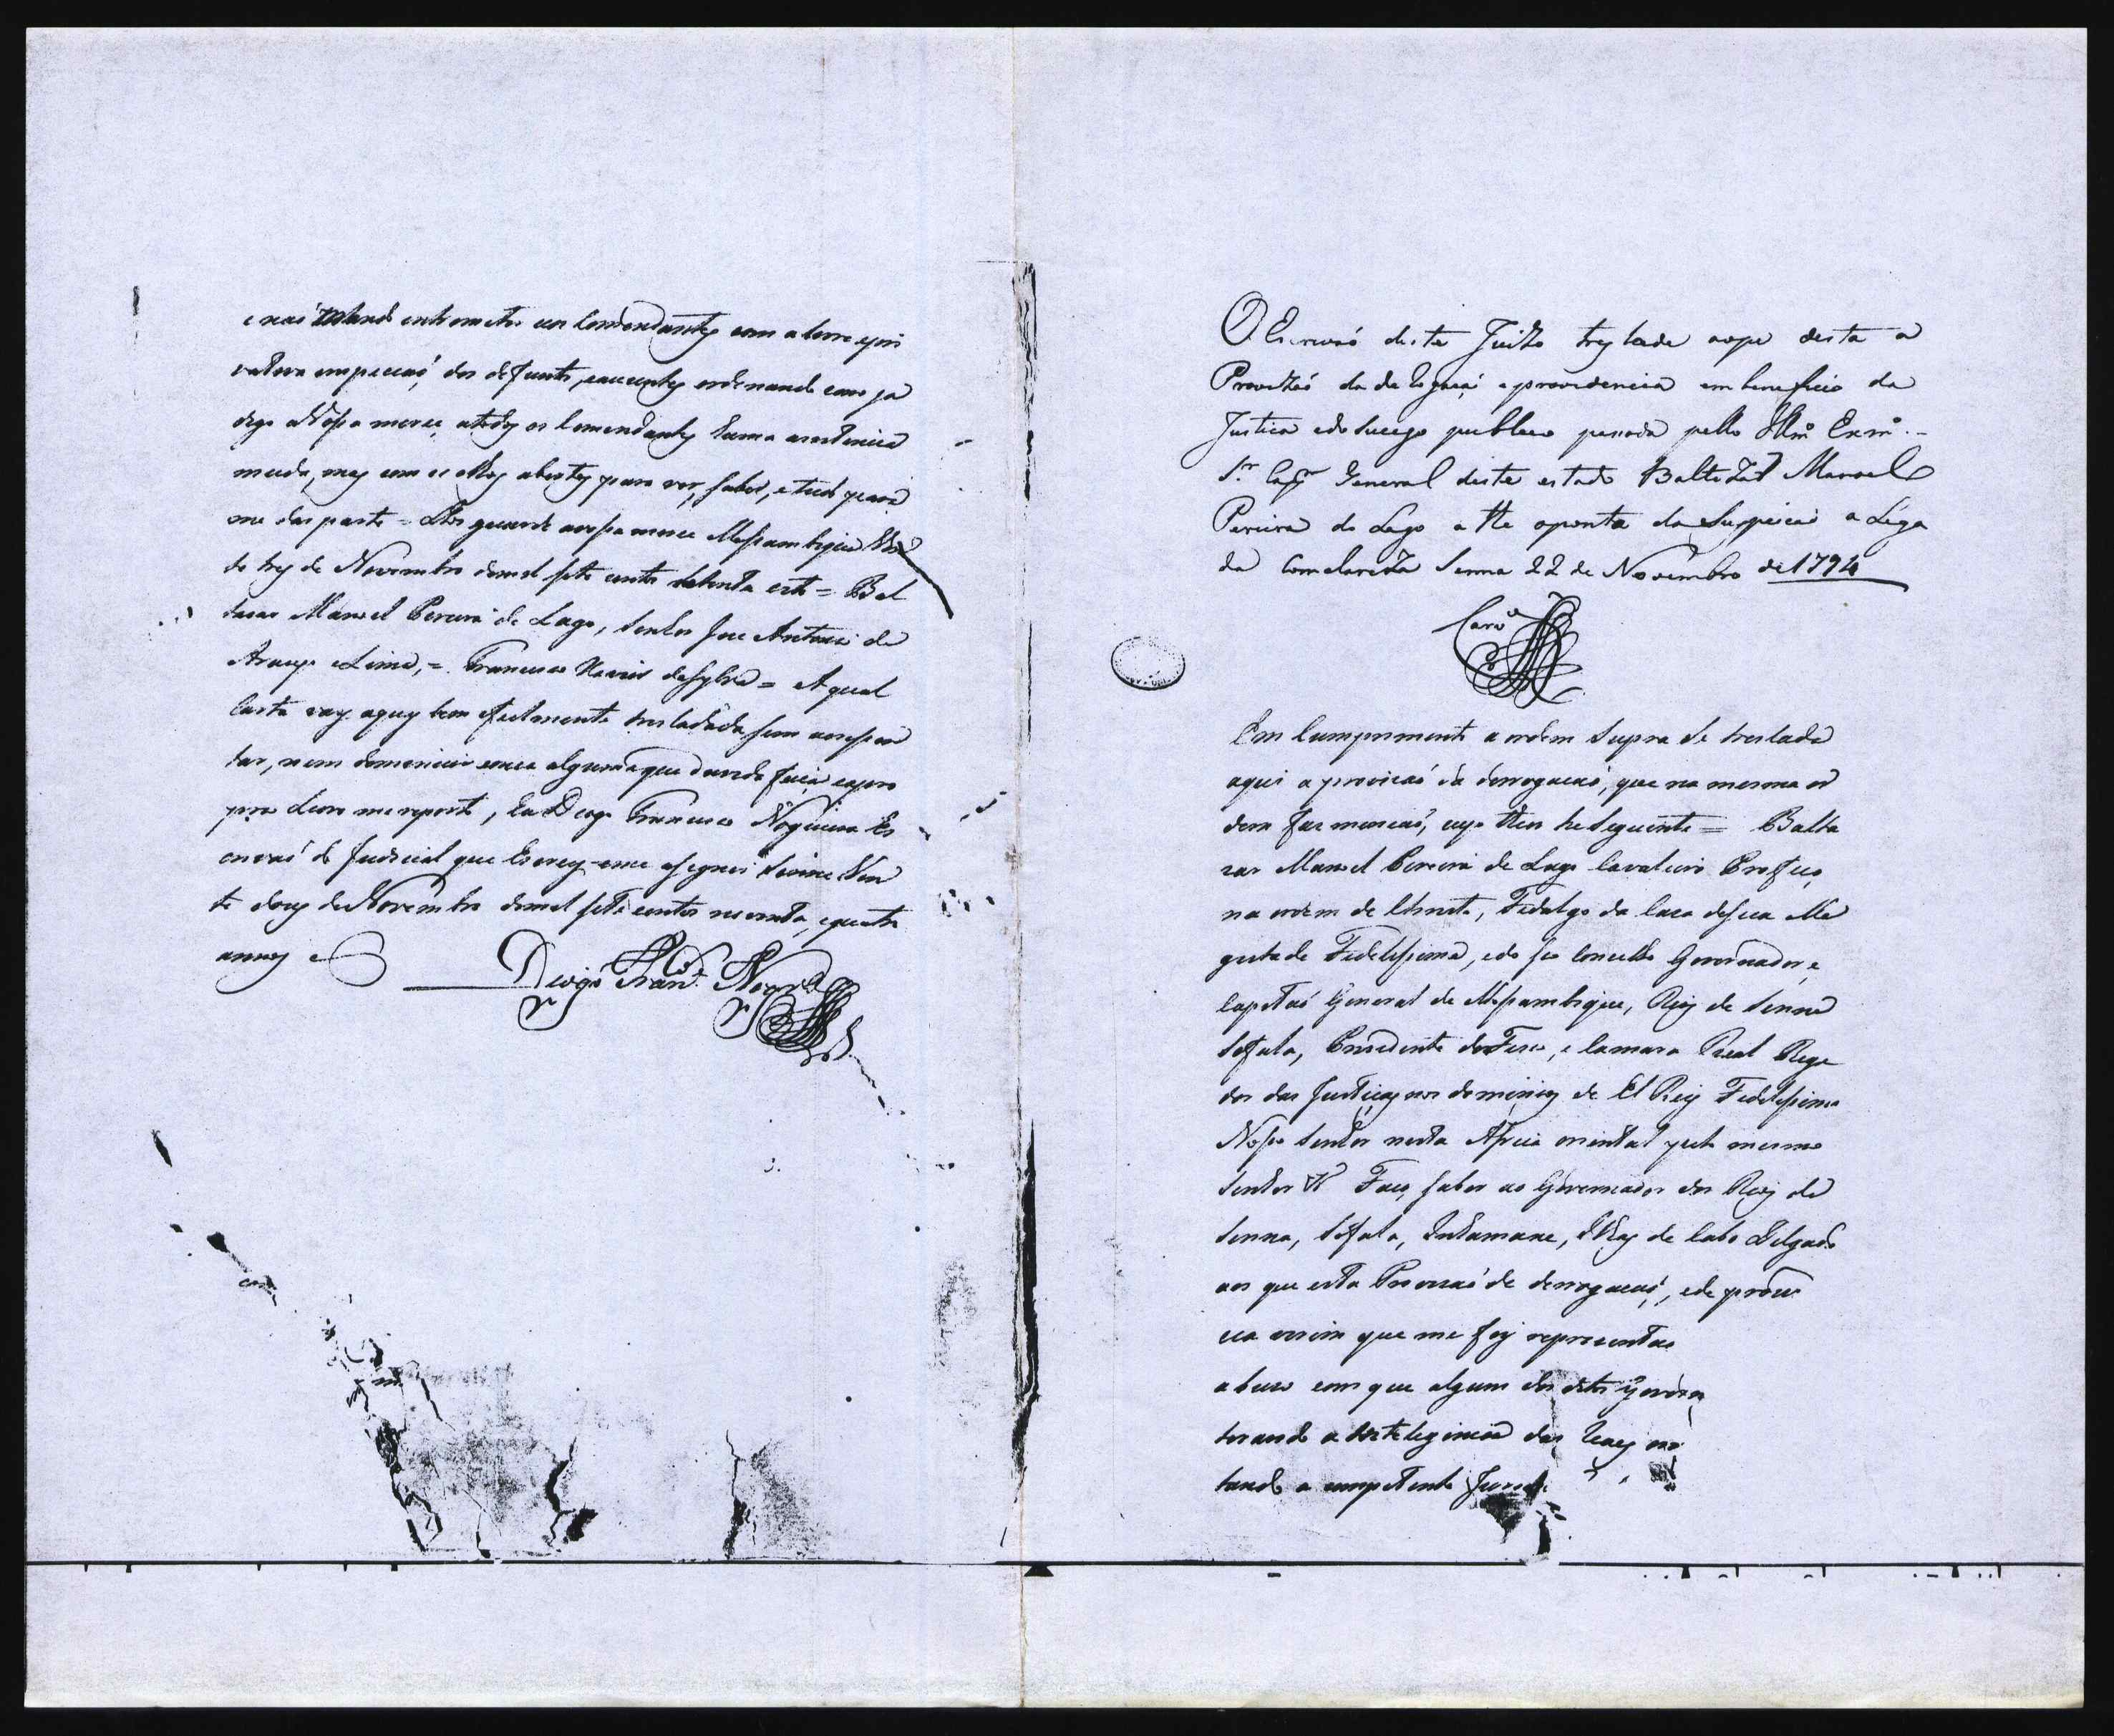 e naõ entrometer os Comendantes com a
dos defuntos, e auzentes ordenando como ja
digo a Vossa merce, a todos os Comendantes huma
muda, mas com os olhos abertos para ver, saber, e tudo para
me dar parte = Deos guarde a vossa merce Mossambique
de Novembro de mil sete centos setenta e = Bal
tazar Manoel Pereira do Lago, Senhor Joze Antonio de
Araujo Lima, = Francisco Xavier da Sylva = A qual
Carta vay aquy bem e fielmente tresladada sem acressen
tar, nem demenuir couza alguma que duvida faça e a pro
pria Livro me reporto, Eu Diogo Francisco Nogueira Es
crivaõ do Judicial que Escrevy e me asigney Senna Vin
te dous de Novembro de mil sete centos noventa, e quatro
annos e
Diogo Franco. Nogra.
O Escrivaõ deste Juizo treslade ao pe desta a
Provizaõ da e providencia em beneficio da
Justica e do Sucego publico pasada pello Illmo Exmo.
Sr. Capm General deste estado Baltezar Manoel
Pereira do Lago a
da Senna 22 de Novembro de 1794
Em Cumprimento a ordem Supra se treslada
aqui a provizaõ da derrogacaõ, que na mesma or
dem faz mencaõ, cujo theor he o seguinte = Balta
zar Manoel Pereira do Lago Cavaleiro Profeço
na ordem de Christo, Fidalgo da Caza de sua Ma
gestade Fidelissima, e do seu Concelho Governador, e
Capitaõ General de Mossambique, Rios de Senna
Sofala, Prezidente da Fero, e Camara Real Rege
dor das Justiças nos dominios de El Rey Fidelissimo
Nosso Senhor nesta Africa oriental pelo mesmo
Senhor Faço saber ao Governador dos Rios de
Senna, Sofala, Inhamane, Ilhas de Cabo Delgado
aos que esta Provizaõ de derrogacaõ, e de provi
cia virem que me foy reprezentado
abuzo com que alguns dos ditos Govern
torando a das Leays
tando a competente Jurisdi